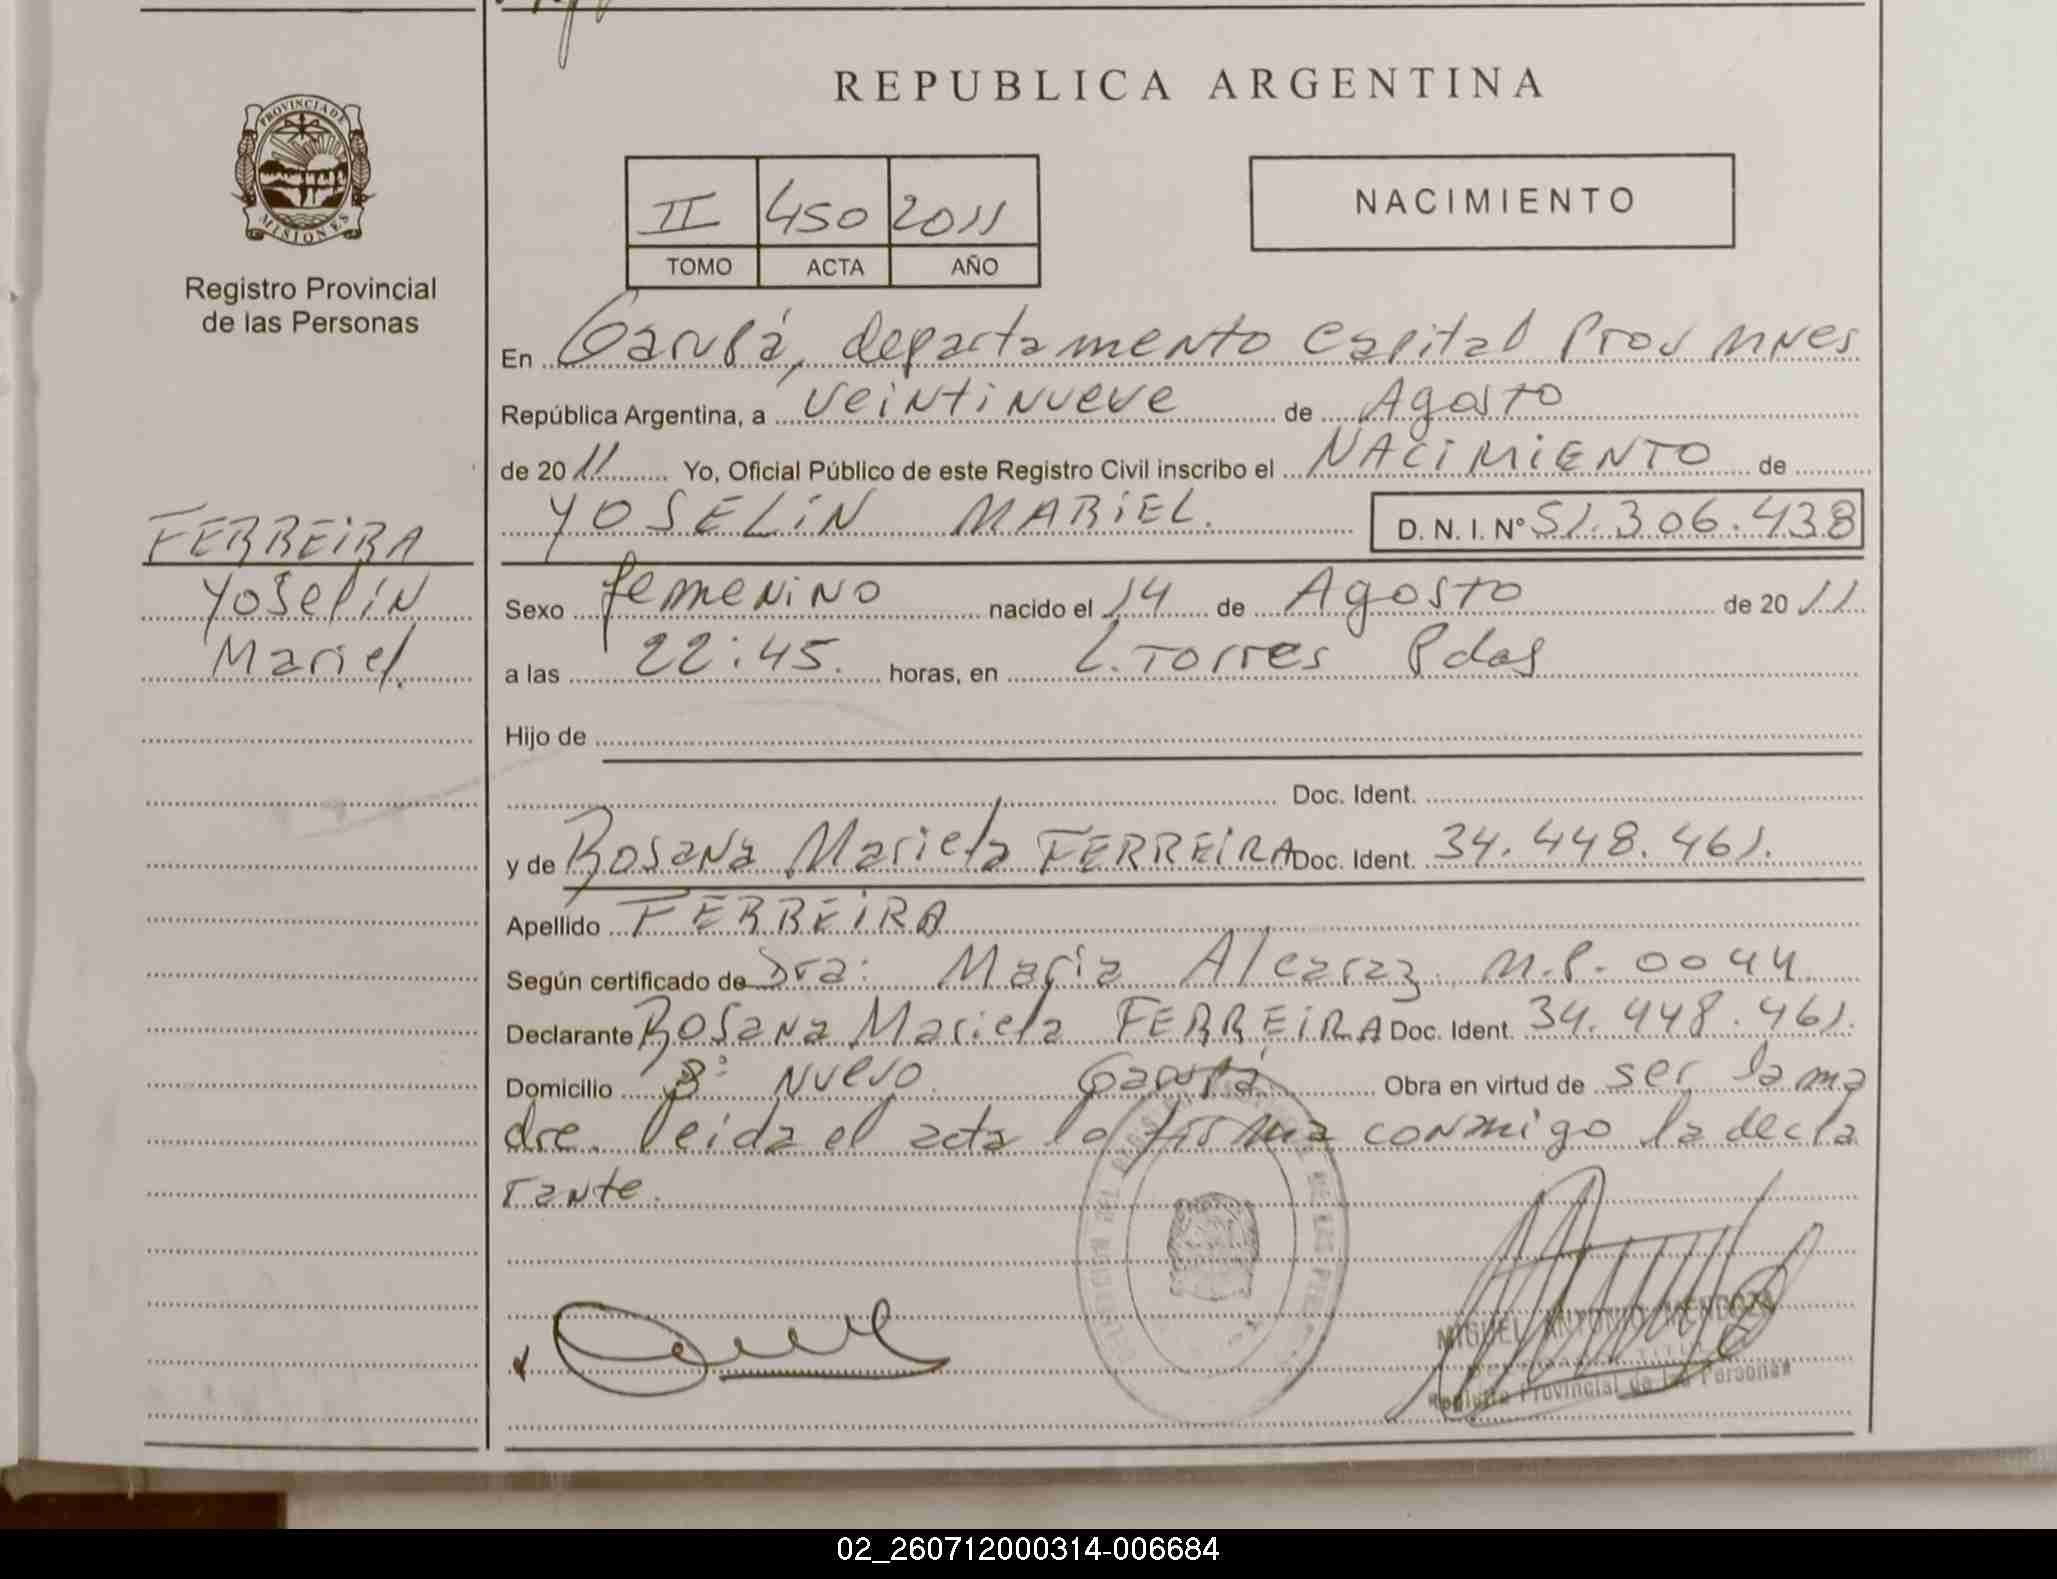 REPUBLICA ARGENTINA
PROVINCIA DE
MISIONES
Registro Provincial
de las Personas
II 450 2011
TOMO ACTA AÑO
NACIMIENTO
En Garupá, departamento Capital Prov Mnes
República Argentina, a veintinueve de Agosto
de 2011 Yo, Oficial Público de este Registro Civil inscribo el NACIMIENTO de
YOSELIN MARIEL. D. N. I. N° 51.306.438
FERREIRA
Yoselin
Mariel.
Sexo femenino nacido el 14 de Agosto de 2011
a las 22:45. horas, en L. Torres Pdas
Hijo de
Doc. Ident.
y de Rosana Mariela FERREIRA Doc. Ident. 34.448.461.
Apellido FERREIRA
Según certificado de Dra: Maria Alcaraz. M.P. 0044
Declarante Rosana Mariela FERREIRA Doc. Ident. 34.448.461.
Domicilio B° Nuevo. Garupá Obra en virtud de ser la ma
dre. leida el acta la firma conmigo la decla
rante.
MIGUEL ANTONIO MENDOZA
Registro Provincial de las Personas
02_260712000314-006684